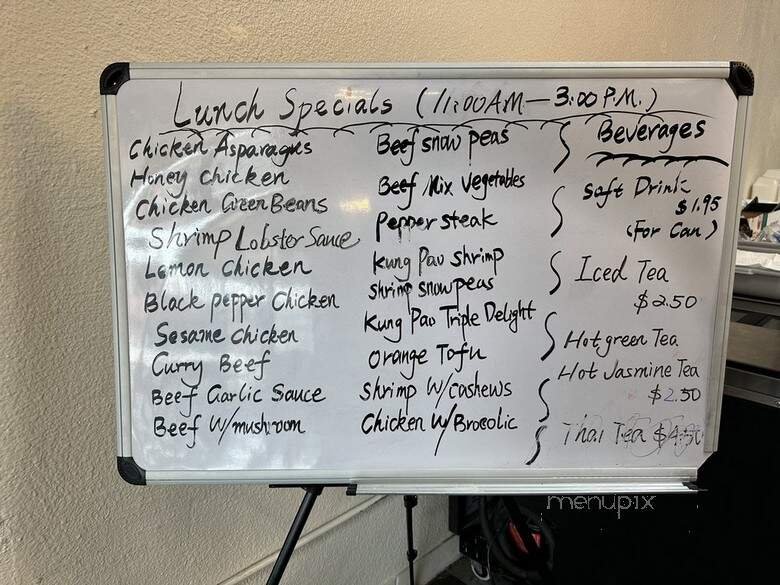 Lunch Specials (11:00AM—3:00P.M.)
Chicken Asparagus
Honey chicken
Chicken Green Beans
Shrimp Lobster Sauce
Lemon Chicken
Black pepper Chicken
Sesame Chicken
Curry Beef
Beef Garlic Sauce
Beef W/mushroom
Beef snow peas
Beef Mix Vegetables
Pepper steak
Kung Pao shrimp
shrimp snow peas
Kung Pao Triple Delight
Orange Tofu
Shrimp W/cashews
Chicken W/Brocolic
Beverages
Soft Drink
$1.95
(For Can)
Iced Tea
$2.50
Hot green Tea
Hot Jasmine Tea
$2.50
Thai Tea
menupix